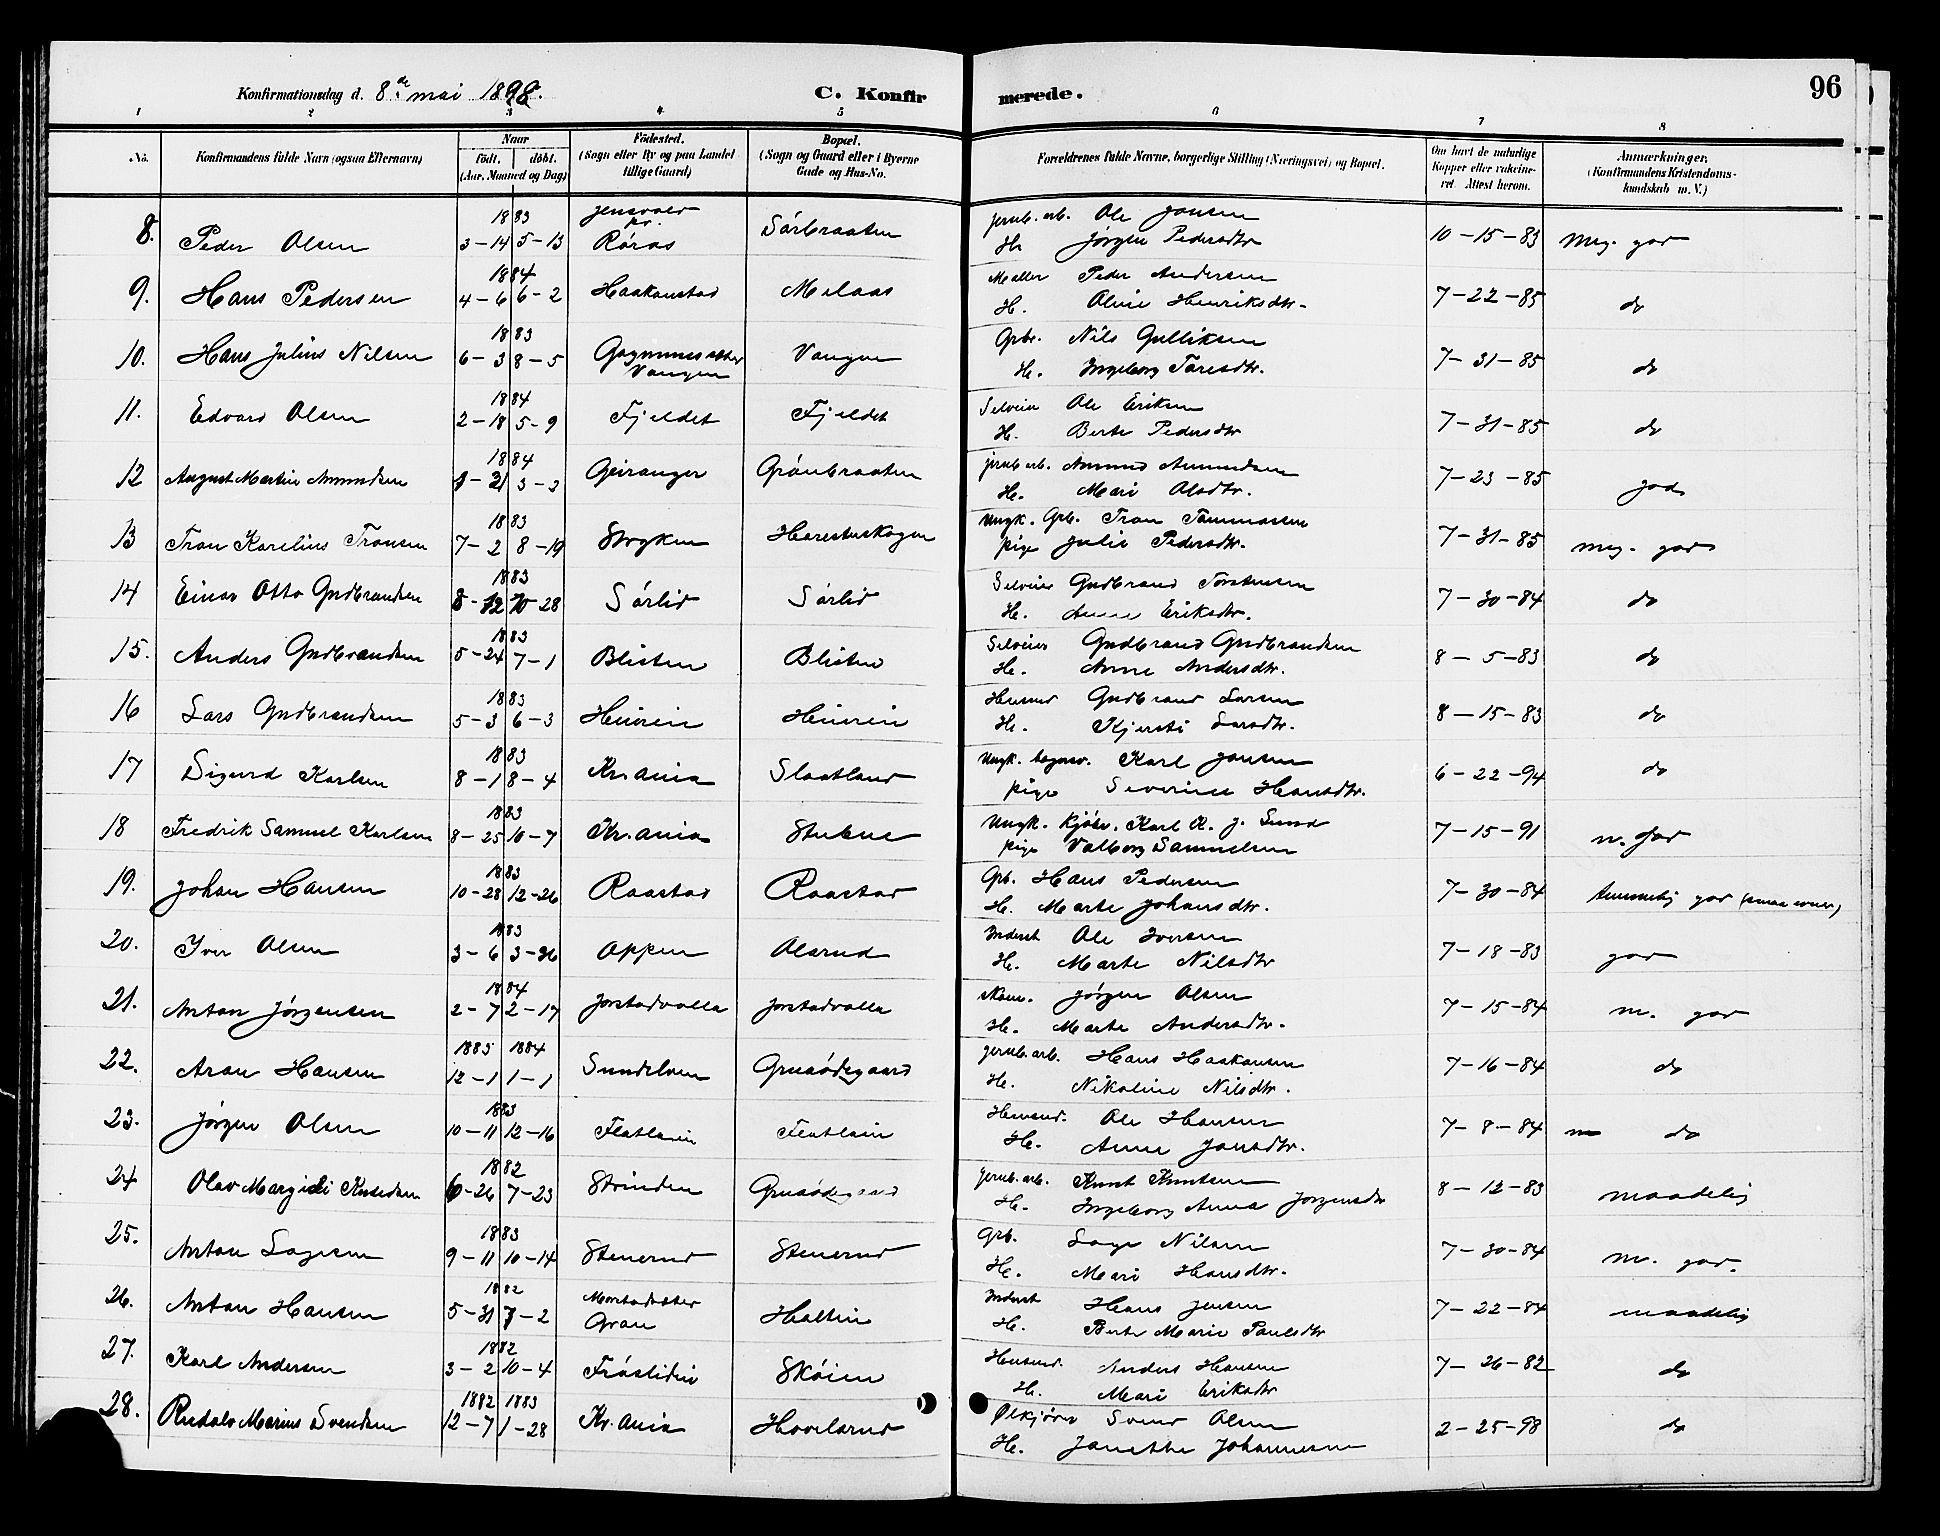 Konfirmationsdag d. 8de mai 1898.
C. Konfirmerede.
96
1 2 3 4 5 6 7 8
No.
Konfirmandens fulde Navn (ogsaa Efternavn)
Naar
født. døbt.
(Aar, Maaned og Dag)
Födested.
(Sogn eller By og paa Landet
tillige Gaard)
Bopæl.
(Sogn og Gaard eller i Byerne
Gade og Hus-No.
Forældrenes fulde Navne, borgerlige Stilling (Næringsvei) og Bopæl.
Om havt de naturlige
Kopper eller vakcine-
ret. Attest herom.
Anmærkninger.
(Konfirmandens Kristendoms-
kundskab m. V.)
8. Peder Olsen 1883 3-14 5-13 Røraas Sørbraaten jernb. arb. Ole Jonsen 10-15-83 meg. god
H. Jørgine Pedersdtr
9. Hans Pedersen 1884 4-6 6-2 Haakenstad Melaas Møller Peder Andersen 7-22-85 do
H. Oline Henriksdtr.
10. Hans Julius Nilsen 1883 6-3 8-5 Vangen Vangen Grbr. Nils Gulliksen 7-31-85 do
H. Ingeborg Taresdtr.
11. Edvard Olsen 1884 2-18 5-9 Fjeldet Fjeldet Selveier Ole Eriksen 7-31-85 do
H. Berte Pedersdtr
12 August Martin Amundsen 1884 1-21 3-3 Geiranger Grønbraaten jernb. arb. Amund Amundsen 7-23-85 god
H. Mari Olsdtr.
13 Tron Karelius Tronsen 1883 7-2 8-19 Stryken Harestuskogen Ungk. Grb. Tron Tommassen 7-31-85 meg. god
pige Julie Pedersdtr.
14 Einar Otto Gudbrandsen 1883 8-12 10-28 Sørlid Sørlid Selveier Gudbrand Torstensen 7-30-84 do
H. Anne Eriksdtr.
15. Anders Gudbrandsen 1883 5-24 7-1 Blisten Blisten Selveier Gudbrand Gudbrandsen 8-5-83 do
H. Anne Andersdtr.
16 Lars Gudbrandsen 1883 5-3 6-3 Heieren Heieren Husmd Gudbrand Larsen 8-15-83 do
H. Kjersti Larsdtr.
17 Sigurd Karlsen 1883 8-1 8-4 Kr.ania Slaatland Ungk. Karl Jonsen 6-22-94 do
pige Severine Hansdtr.
18 Fredrik Samuel Karlsen 1883 8-25 10-7 Kr.ania Stubne Ungk. Kjøbm. Karl K. J. Lund 7-15-91 m. god
pige Valborg Samuelsen
19. Johan Hansen 1883 10-28 12-26 Raastad Raastad Grb. Hans Pedersen 7-30-84 temmelig god (smaa evner)
H. Marte Johansdtr.
20. Iver Olsen 1883 3-6 3-26 Oppen Alsrud Inderst Ole Iversen 7-18-83 god
H. Marte Nilsdtr
21. Anton Jørgensen 1884 2-7 2-17 Jorstadvolla Jorstadvolla skom. Jørgen Olsen 7-15-84 m. god
H. Marte Andersdtr.
22. Aron Hansen 1883 1884 12-1 1-1 Sundelven Gruaødegaard jernb. arb. Hans Haakensen 7-16-84 do
H. Nikoline Nilsdtr.
23. Jørgen Olsen 1883 10-11 12-16 Flatlein Flatlein Husmd. Ole Hansen 7-8-84 m do
H. Anne Jonsdtr.
24 Olav Margido Knudsen 1882 6-26 7-23 Strinden Gruaødegaard jernb. arb. Knut Knutsen 8-12-83 maadelig
H. Ingeborg Anna Jørgensdtr
25. Anton Lagesen 1883 9-11 10-14 Stenerud Stenerud Grb. Lage Nilsen 7-30-84 m. god.
H. Mari Hansdtr.
26. Anton Hansen 1882 5-31 7-2 Gran Holtin Inderst Hans Jensen 7-22-84 maadelig
H. Berte Marie Paulsdtr
27. Karl Andersen 1882 3-2 10-4 Frøslidin Skøien Husmd. Anders Hansen 7-26-82 do
H. Mari Eriksdtr
28. Rudolv Marius Svendsen. 1882 1883 12-7 1-28 Kr.ania Hovelsrud Ølkjører Svend Olsen 2-25-98 do
H. Janette Johannesen